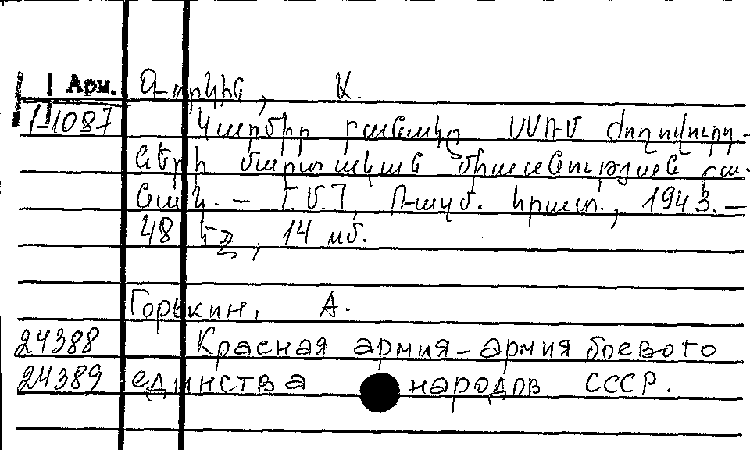 Арм.
1-1087 Կարմիր բանակը ՍՍՌՄ ժողովուրդ-
ների մարտական միասնության բա-
նակ. — ՀՄՀ, Ռազմ. հրատ., 1943.—
48 էջ, 14 սմ.
Горькин, А.
24388 Красная армия - армия боевого
24389 единства народов СССР.